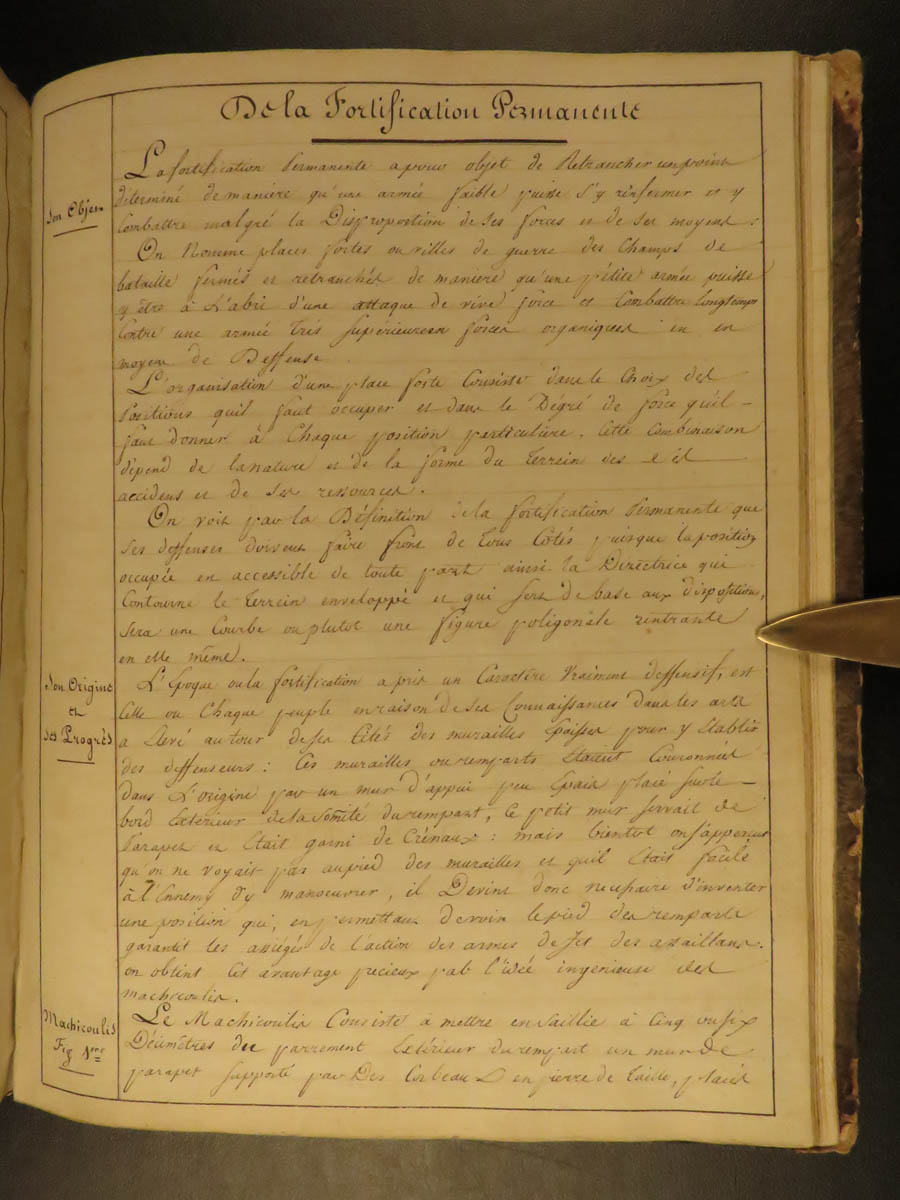 De la Fortification Permanente
La fortification Permanente a pour objet de Retrancher un point
Son Objet
déterminé de maniere qu'une armée faible puisse s'y renfermer et y
Combattre malgré la Disproportion de ses forces et de ses moyens.
On Nomme places fortes ou villes de guerre des Champs de
bataille fermés et retranchés de maniere qu'une pétite armée puisse
y être à L'abri d'une attaque de vive force et Combattre longtemps
Contre une armée très supérieure en forces organiques et en
moyens de Deffense
L'organisation d'une place forte Consiste dans le Choix des
Positions qu'il faut occuper et dans le Dégré de force qu'il
faut donner à Chaque position particuliere. Cette Combinaison
dépend de la nature et de la forme du terrein des
accidens et de ses ressources.
On voit par la Définition de la fortification Permanente que
Ses deffenses doivent faire front de tous Cotés puisque la position
occupée en accessible de toute part ainsi la Directrice qui
Contourne le terrein enveloppé et qui sert de base aux dispositions,
sera une Courbe ou plutot une figure poligonale rentrante
en elle même.
Son Origine
et
ses Progrès
L'Epoque ou la fortification a pris un Caractère Vraiment deffensif, est
Celle ou Chaque peuple en raison de ses Connaissances dans les arts
a Elevé autour de ses Cités des murailles Epaisses pour y Etablir
des deffenseurs : Ces murailles ou remparts Etaient Couronnés
dans L'origine par un mur d'appui peu Epais placé sur le
bord Extérieur de la Somité du rempart, Ce petit mur servait de
Parapet et Etait garni de Crénaux : mais bientot on s'apperçut
qu'on ne voyait pas au pied des murailles et quil Etait facile
à l'Ennemy d'y manoeuvrer, il Devint donc necessaire d'inventer
une position qui, en permettant de voir le pied des remparts
garantit les assiégés de l'action des armes de Jet des assaillans.
on obtint Cet avantage precieux pab l'idée ingenieuse des
machicoulis.
Machicoulis
Fig 1ere
Le Machicoulis Consiste à mettre en Saillie à Cinq ou six
Décimètres du parrement Extérieur du rempart un mur de
parapet supporté par Des Corbeaux en pierre de Taille, placés